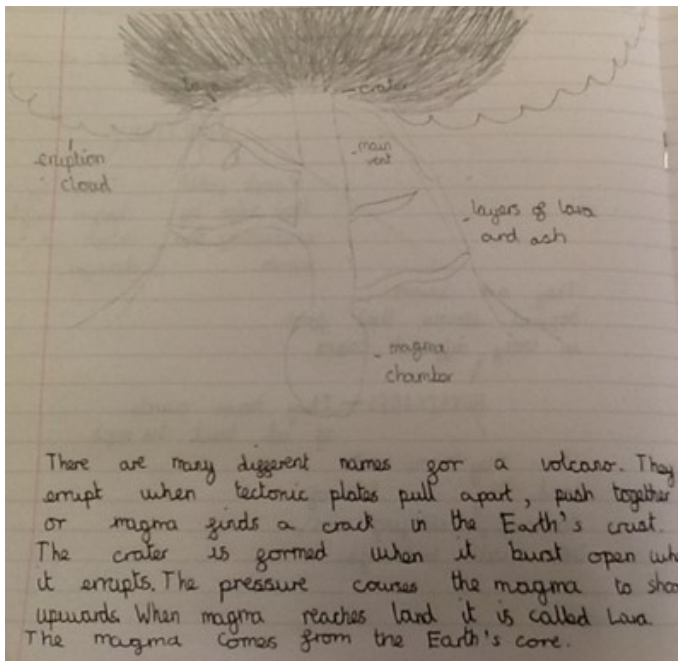 lava
crater
eruption
cloud
main
vent
layers of lava
and ash
magma
chamber
There are many different names for a volcano. They
errupt when tectonic plates pull apart, push together
or magma finds a crack in the Earth's crust.
The crater is formed when it burst open
it errupts. The pressure courses the magma to
upwards. When magma reaches land it is called Lava.
The magma comes from the Earth's core.